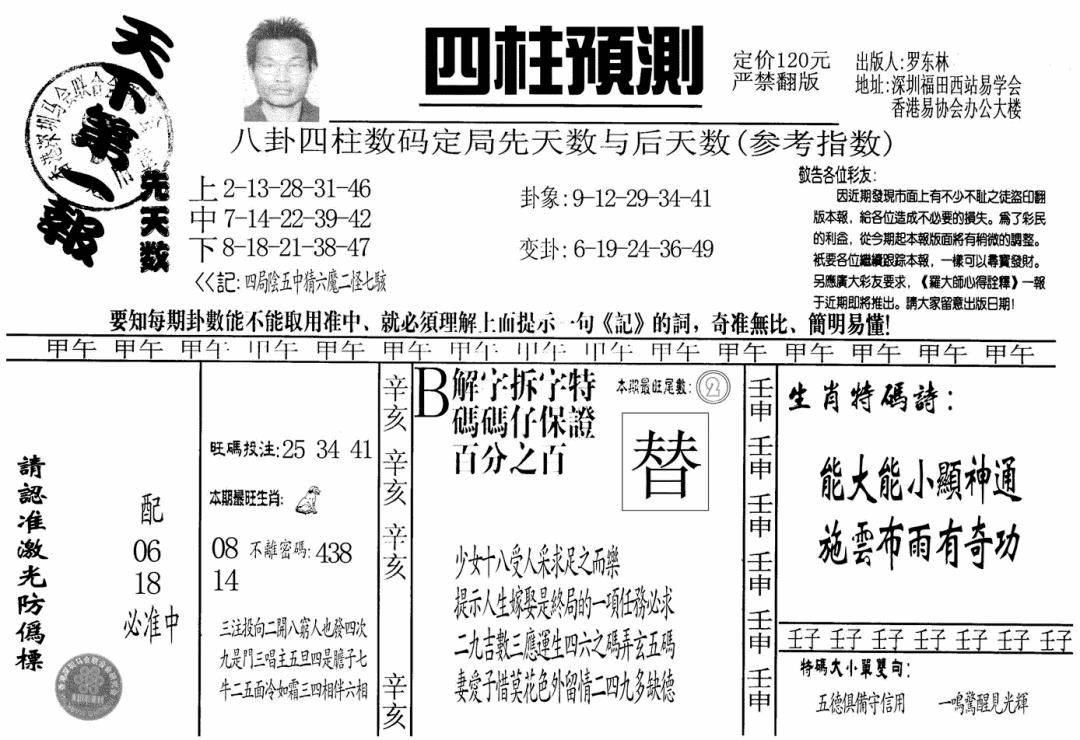 天下第一報
四柱預測
定价120元
严禁翻版
出版人:罗东林
地址:深圳福田西站易学会
香港易协会办公大楼
八卦四柱数码定局先天数与后天数(参考指数)
先天数
上 2-13-28-31-46
中 7-14-22-39-42
下 8-18-21-38-47
卦象:9-12-29-34-41
变卦:6-19-24-36-49
<<記:四局陰五中猜六魔二怪七駭
敬告各位彩友:
因近期發現市面上有不少不耻之徒盜印翻
版本報,給各位造成不必要的損失。為了彩民
的利益,從今期起本報版面將有稍微的調整。
衹要各位繼續跟踪本報,一樣可以尋寶發財。
另應廣大彩友要求,《羅大師心得詮釋》一報
于近期即將推出。請大家留意出版日期!
要知每期卦數能不能取用准中、就必須理解上面提示一句《記》的詞,奇准無比、簡明易懂!
甲午 甲午 甲午 甲午 甲午 甲午 甲午 甲午 甲午 甲午 甲午 甲午 甲午 甲午 甲午
請認准激光防僞標
配
06
18
必准中
旺碼投注:25 34 41
本期最旺生肖:
08 不離密碼:438
14
三注投向二開八窮人也發四次
九是門三唱主五旦四是膽子七
牛二五面冷如霜三四相伴六相
辛亥
辛亥
辛亥
辛亥
B
解字拆字特
碼碼仔保證
百分之百
本期最旺尾數:2
替
少女十八受人采求足之而樂
提示人生嫁娶是終局的一項任務必求
二九吉數三應運生四六之碼弄玄五碼
妻愛子惜莫花色外留情二四九多缺德
壬申
壬申
壬申
壬申
壬申
壬申
生肖特碼詩:
能大能小顯神通
施雲布雨有奇功
壬子 壬子 壬子 壬子 壬子 壬子 壬子
特碼大小單雙句:
五德俱備守信用 一鳴驚醒見光輝